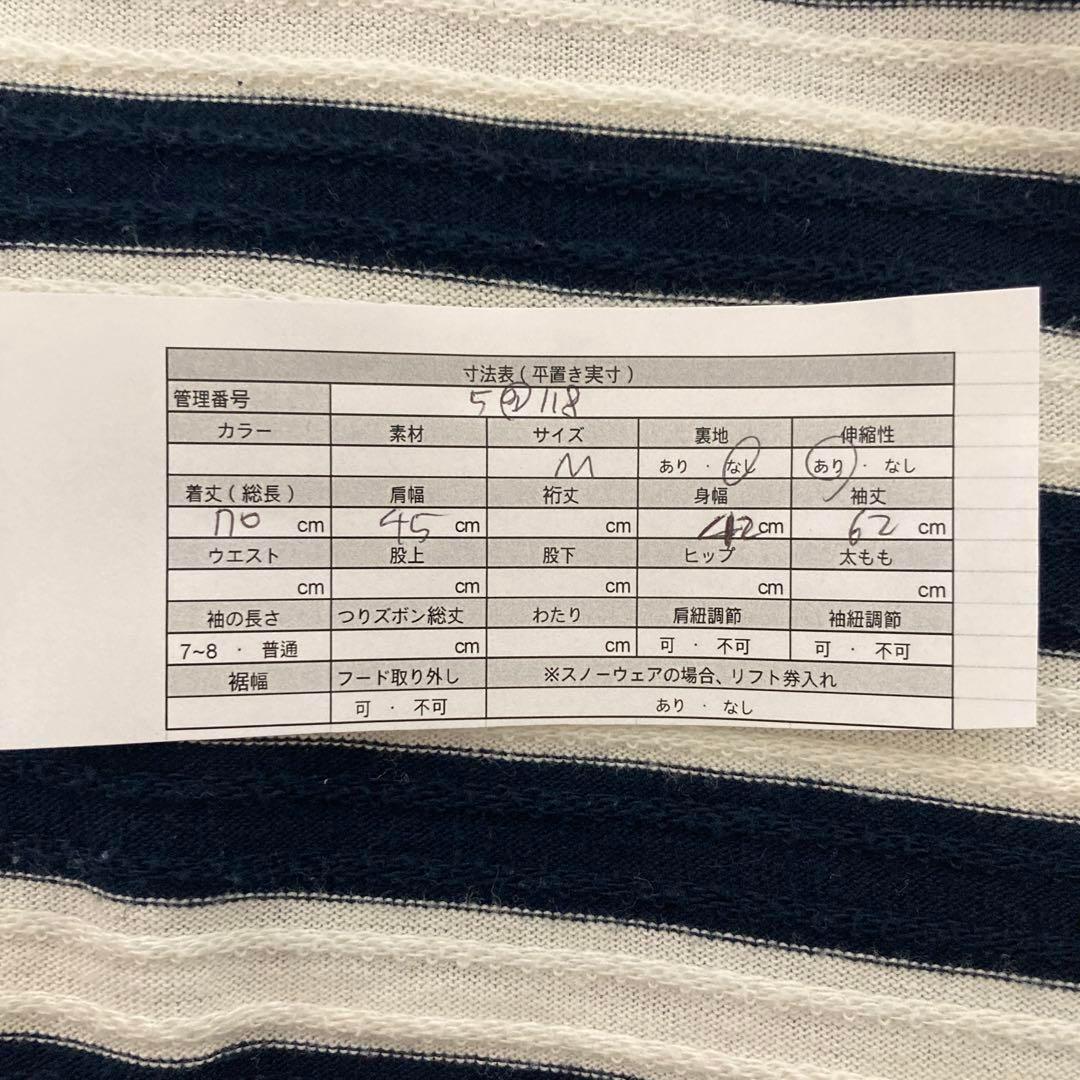 寸法表 ( 平置き実寸 )
管理番号 5② 118
カラー 素材 サイズ 裏地 伸縮性
M あり ・ なし あり ・ なし
着丈 ( 総長 ) 肩幅 裄丈 身幅 袖丈
70 cm 45 cm cm 42 cm 62 cm
ウエスト 股上 股下 ヒップ 太もも
cm cm cm cm cm
袖の長さ つりズボン総丈 わたり 肩紐調節 袖紐調節
7~8 ・ 普通 cm cm 可 ・ 不可 可 ・ 不可
裾幅 フード取り外し ※スノーウェアの場合、リフト券入れ
可 ・ 不可 あり ・ なし